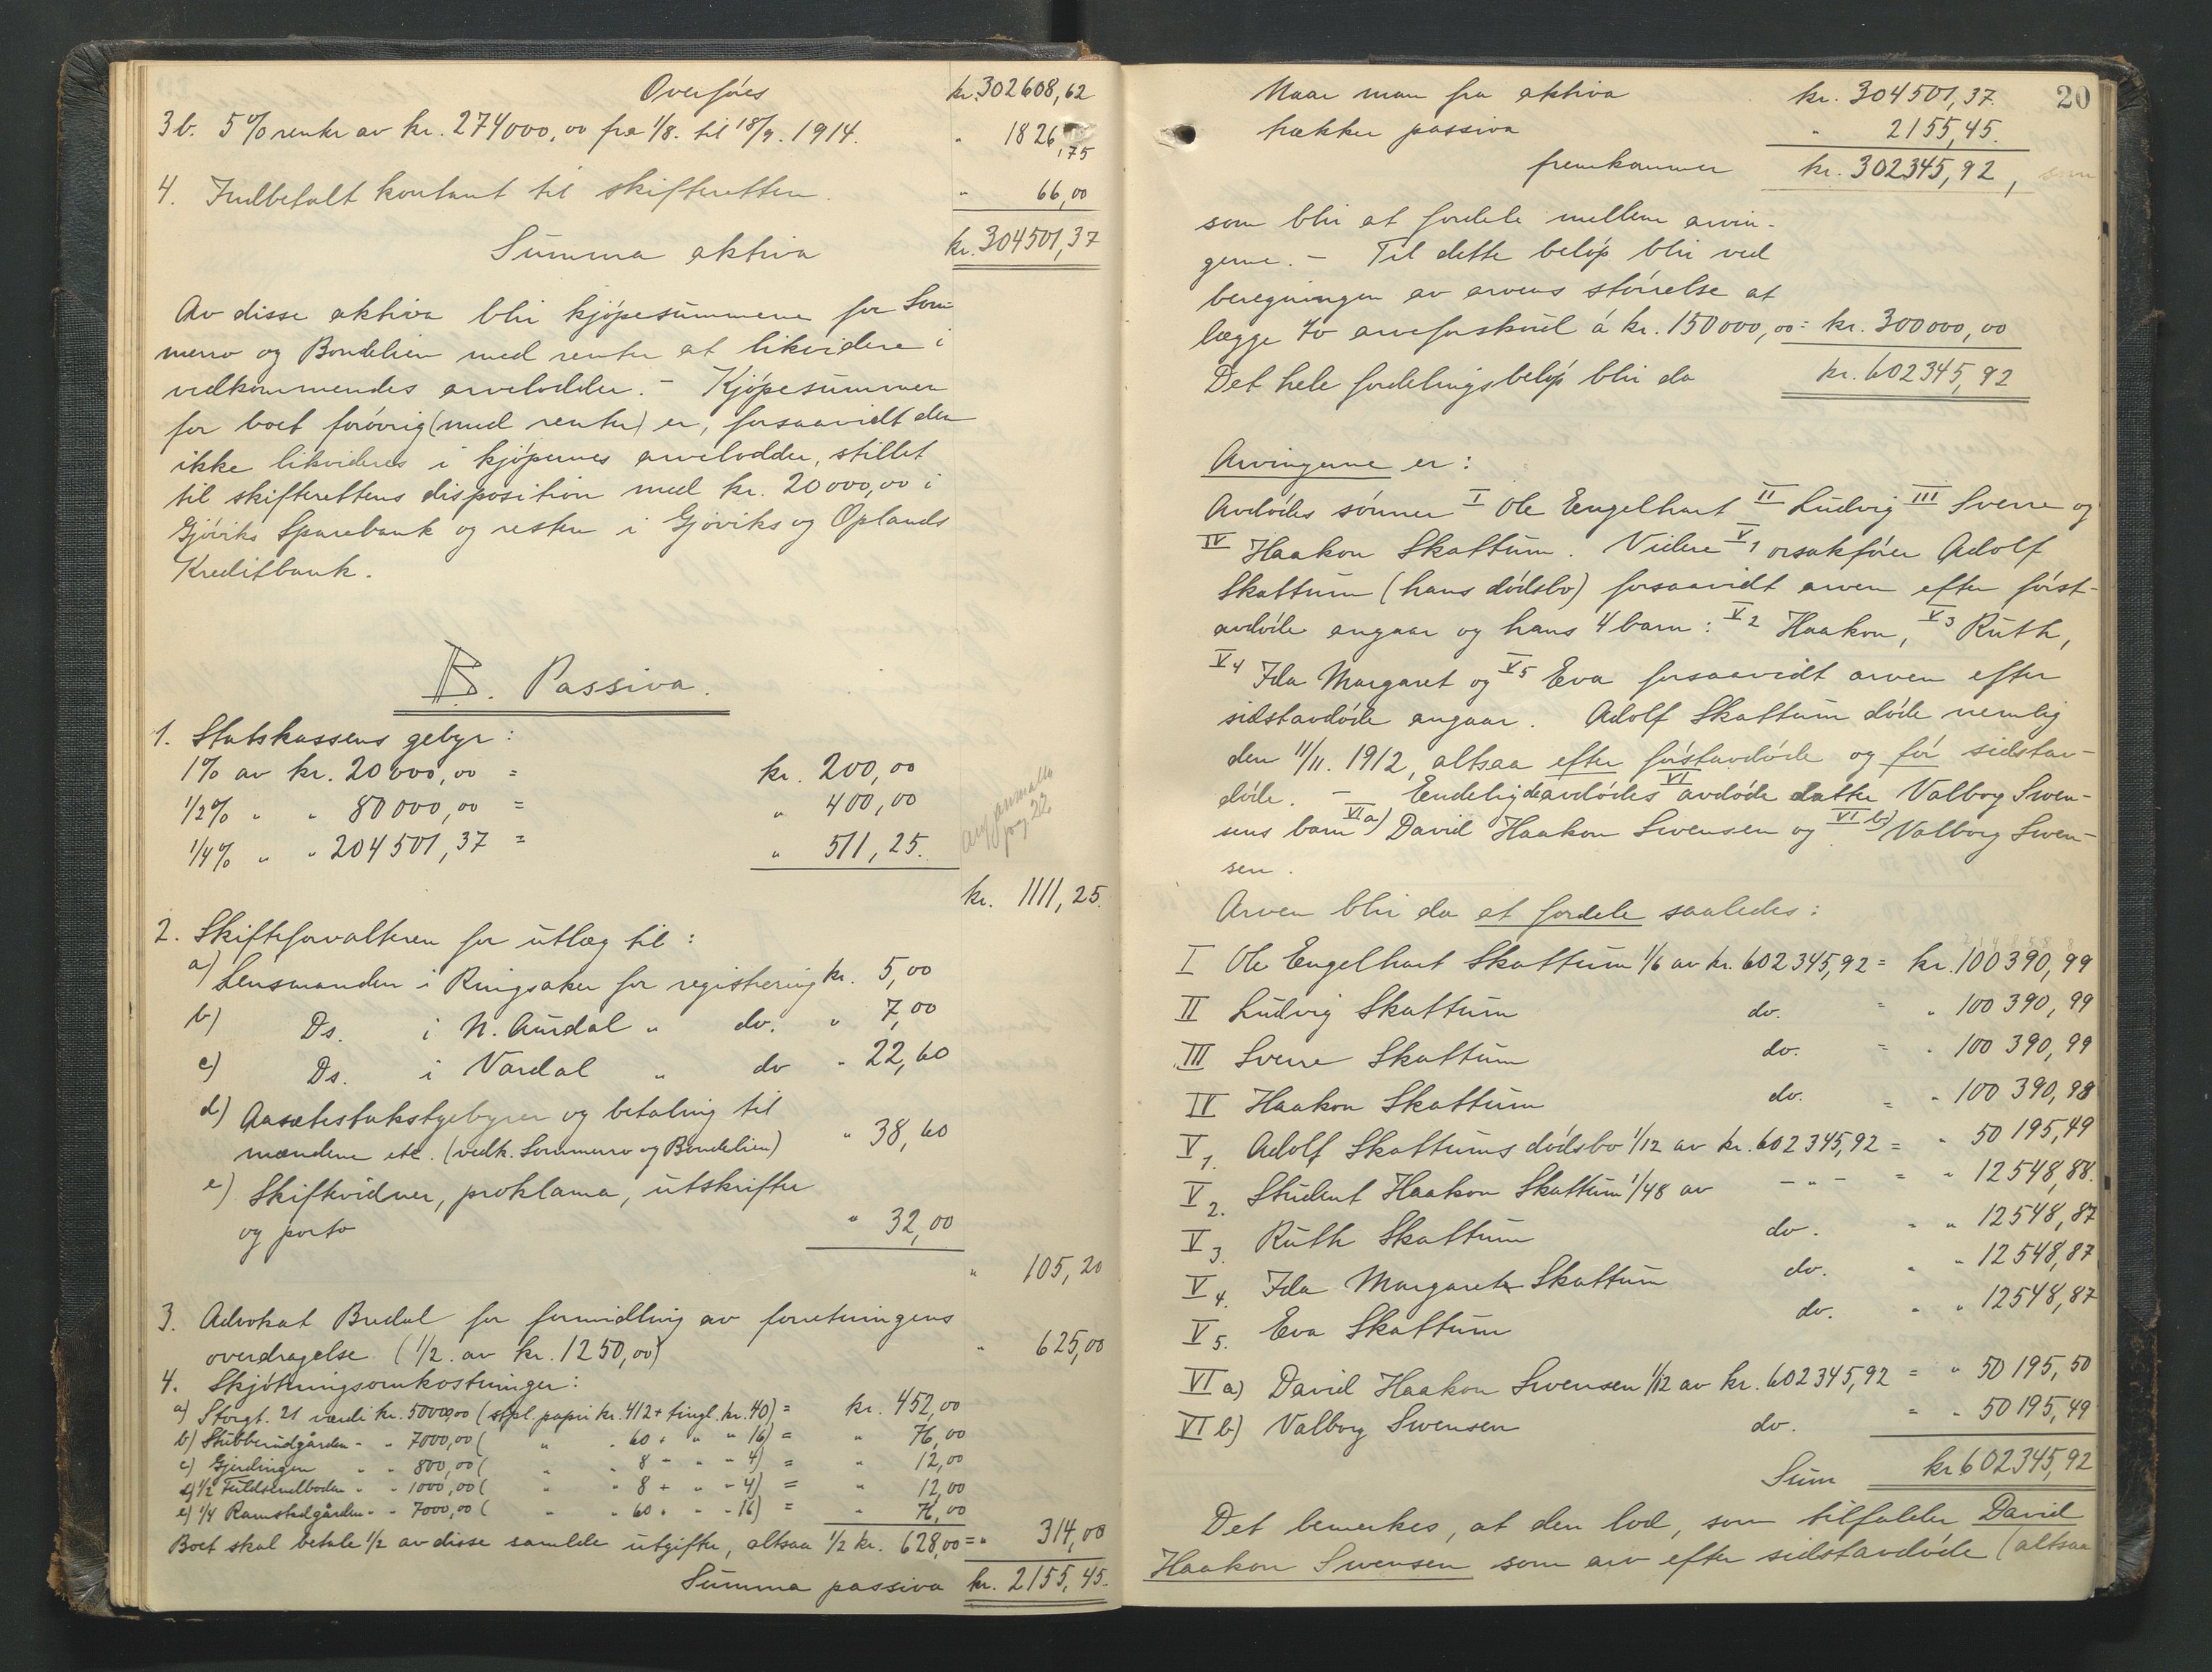 Overføres kr. 302608,62
3b. 5% renter av kr. 274000,00 fra 1/8. til 18/9. 1914. " 1826,75
4. Indbetalt kontant til skifteretten. " 66,00
Summa aktiva kr. 304501,37
Av disse aktiva blir kjøpesummene for Som-
merro og Bondelien med renter at likvidere i
vedkommendes arvelodder. - Kjøpesummen
for boet forøvrig (med renter) er, forsaavidt den
ikke likvideres i kjøpernes arvelodder, stillet
til skifterettens disposition med kr. 20000,00 i
Gjøviks Sparebank og resten i Gjøviks og Oplands
Kreditbank.
B. Passiva.
1. Statskassens gebyr:
1% av kr. 20000,00 = kr. 200,00
1/2% " " 80000,00 = " 400,00
1/4% " " 204501,37 = " 511,25.
pag 22
kr. 1111,25.
2. Skifteforvalteren for utlæg til:
a) Lensmanden i Ringsaker for registrering kr. 5,00
b) Ds. i N. Aurdal " do. " 7,00
c) Ds. i Vardal " do " 22,60
d) Aasætestakstgebyrer og betaling til
mændene etc. (vedk. Sommerro og Bondelien) " 38,60
e) Skiftevidner, proklama, utskrifter
og porto " 32,00
" 105,20
3. Advokat Bredal for formidling av forretningens
overdragelse (1/2 av kr. 1250,00) " 625,00
4. Skjøtningsomkostninger:
a) Storgt. 21 værdi kr. 50000,00 (stpl. papir kr. 412 + tingl. kr. 40) = kr. 452,00
b) Stubberudgården - " 7000,00 ( " " 60 + " " 16) = " 76,00
c) Gjerdingen " " 800,00 ( " " 8 + " " 4) = " 12,00
d) 1/2 " " 1000,00 ( " " 8 + " " 4) = " 12,00
e) 1/4 Ramstadgården - " 7000,00 ( " " 60 + " " 16) = " 76,00
Boet skal betale 1/2 av disse samlede utgifter, altsaa 1/2 kr. 628,00 = " 314,00
Summa passiva kr. 2155,45.
20
Naar man fra aktiva kr. 304501,37.
trækker passiva " 2155,45.
fremkommer kr. 302345,92, som
som blir at fordele mellem arvin-
gerne. - Til dette beløp blir ved
beregningen av arvens størrelse at
lægge to arveforskud á kr. 150000,00 = kr. 300000,00
Det hele fordelingsbeløp blir da kr. 602345,92
Arvingerne er:
Avdødes sønner I Ole Engelhart II Ludvig III Sverre og
IV Haakon Skattum. Videre V1 orsakfører Adolf
Skattum (hans dødsbo) forsaavidt arven efter først-
avdøde angaar og hans 4 barn: V2 Haakon, V3 Ruth,
V4 Ida Margaret og V5 Eva forsaavidt arven efter
sidstavdøde angaar. Adolf Skattum døde nemlig
den 11/11. 1912, altsaa efter førstavdøde og før sidstav-
døde. - Endelig de avdødes VI avdøde datter Valborg Swen-
sens barn VI a) David Haakon Swensen og VI b) Valborg Swen-
sen.
Arven blir da at fordele saaledes:
I Ole Engelhart Skattum 1/6 av kr. 602345,92 = kr. 100390,99
II Ludvig Skattum do. = " 100390,99
III Sverre Skattum do. = " 100390,99
IV Haakon Skattum do. = " 100390,98
V 1. Adolf Skattums dødsbo 1/12 av kr. 602345,92 = " 50195,49
V 2. Student Haakon Skattum 1/48 av - " - = " 12548,88.
V 3. Ruth Skattum do. " " 12548,87
V 4. Ida Margarete Skattum do. " " 12548,87
V 5. Eva Skattum do. " " 12548,87
VI a) David Haakon Swensen 1/12 av kr. 602345,92 = " 50195,50
VI b) Valborg Swensen do. = " 50195,49
Sum kr 602345,92
Det bemerkes, at den lod, som tilfalder David
Haakon Swensen som arv efter sidstavdøde (altsaa